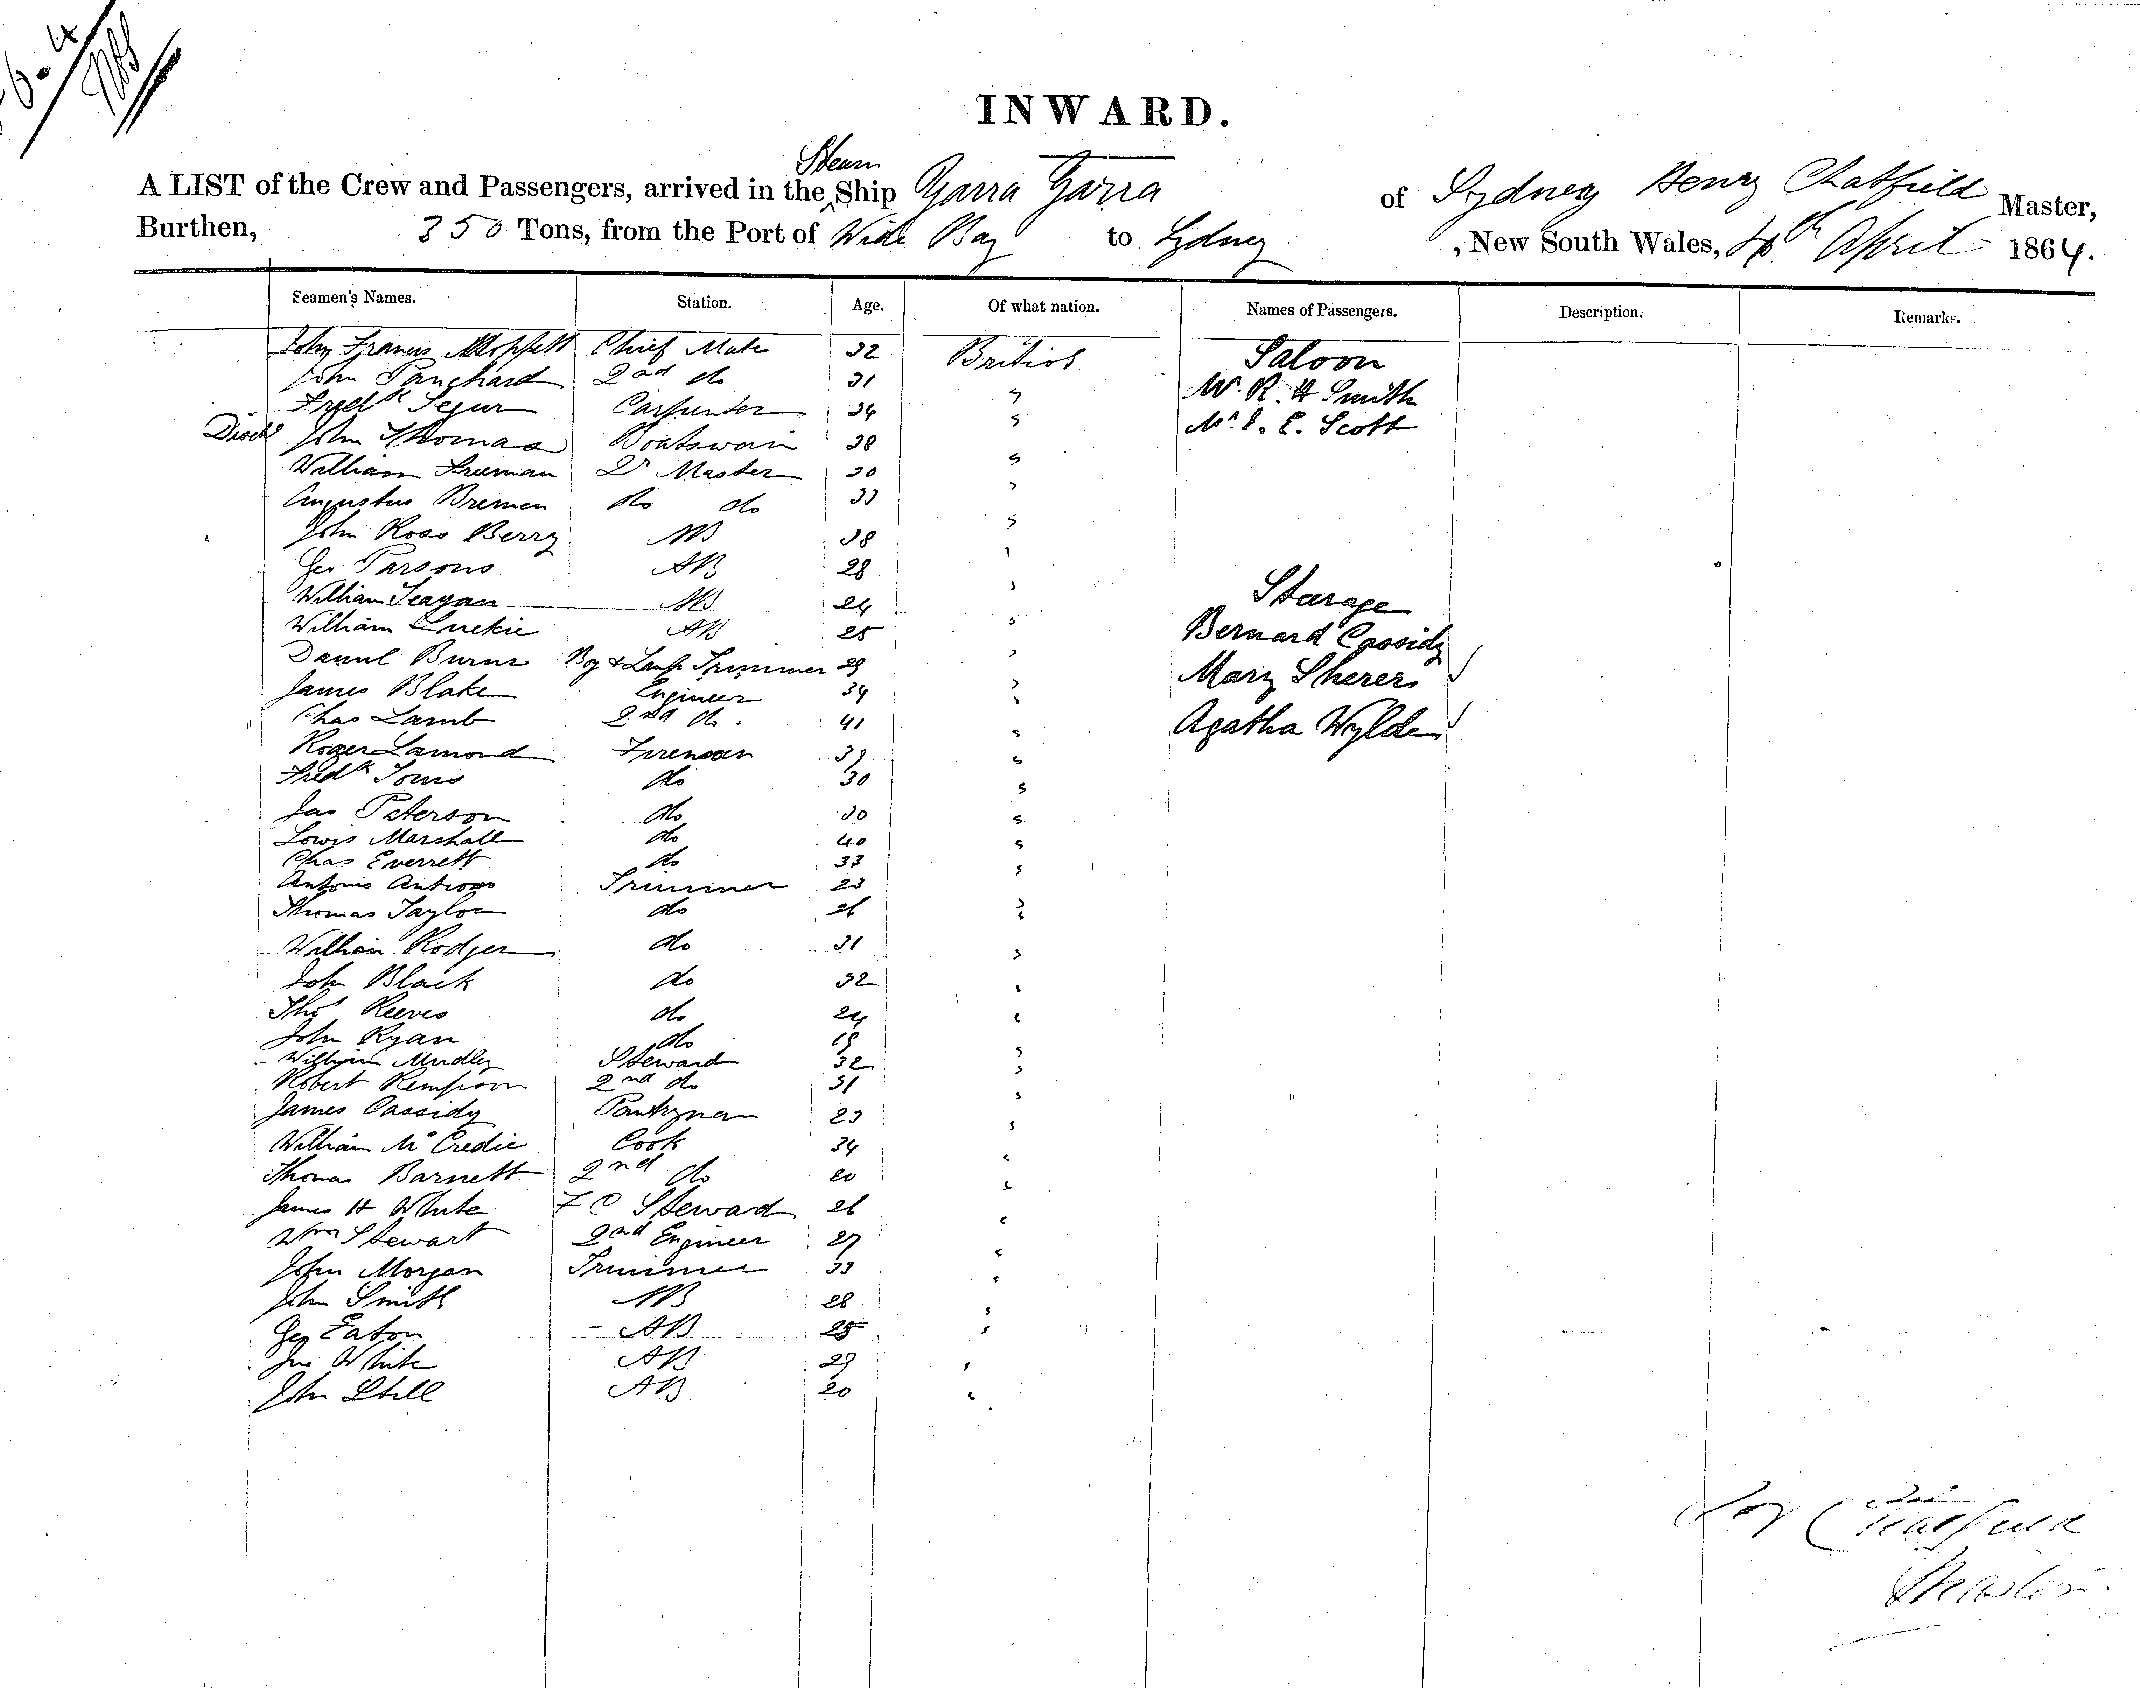 INWARD.
A LIST of the Crew and Passengers, arrived in the Steam Ship Yarra Yarra of Sydney Henry Chatfield Master,
Burthen, 350 Tons, from the Port of Wide Bay to Sydney , New South Wales, 4th April 1864.
Seamen's Names. Station. Age. Of what nation. Names of Passengers. Description. Remarks.
John Francis Moppett Chief Mate 32 British Saloon
John Panchard 2nd do 31 " W. R. H Smith
Fredk Segur Carpenter 34 " Mr J. E. Scott
Disch John Thomas Boatswain 38 "
William Freeman Qr Master 30 "
Augustus Bremen do do 33 "
John Ross Berry AB 38 "
Geo Parsons AB 28 " Steerage
William Teagan AB 24 "
William Luckie AB 25 " Bernard Cassidy
Daniel Burns Boy & Lamp Trimmer 29 " Mary Sherer
James Blake Engineer 34 "
Chas Lamb 2nd do 41 " Agatha Wylde
Roger Lamond Fireman 39 "
Fredk Toms do 30 "
Jas Peterson do 30 "
Lowis Marshall do 40 "
Chas Everrett do 33 "
Antonio Trimmer 23 "
Thomas Taylor do 26 "
William Rodger do 31 "
John Black do 32 "
Thos Reeves do 24 "
John Ryan do 19 "
William Mudley Steward 32 "
Robert Kempson 2nd do 31 "
James Cassidy Pantryman 23 "
William McCredie Cook 34 "
Thomas Barnett 2nd do 20 "
James H White F C Steward 26 "
Wm Stewart 2nd Engineer 27 "
John Morgan Trimmer 33 "
John Smith AB 28 "
Geo Eaton AB 25 "
Jno White AB 29 "
John Still AB 20 "
Chatfield
Master